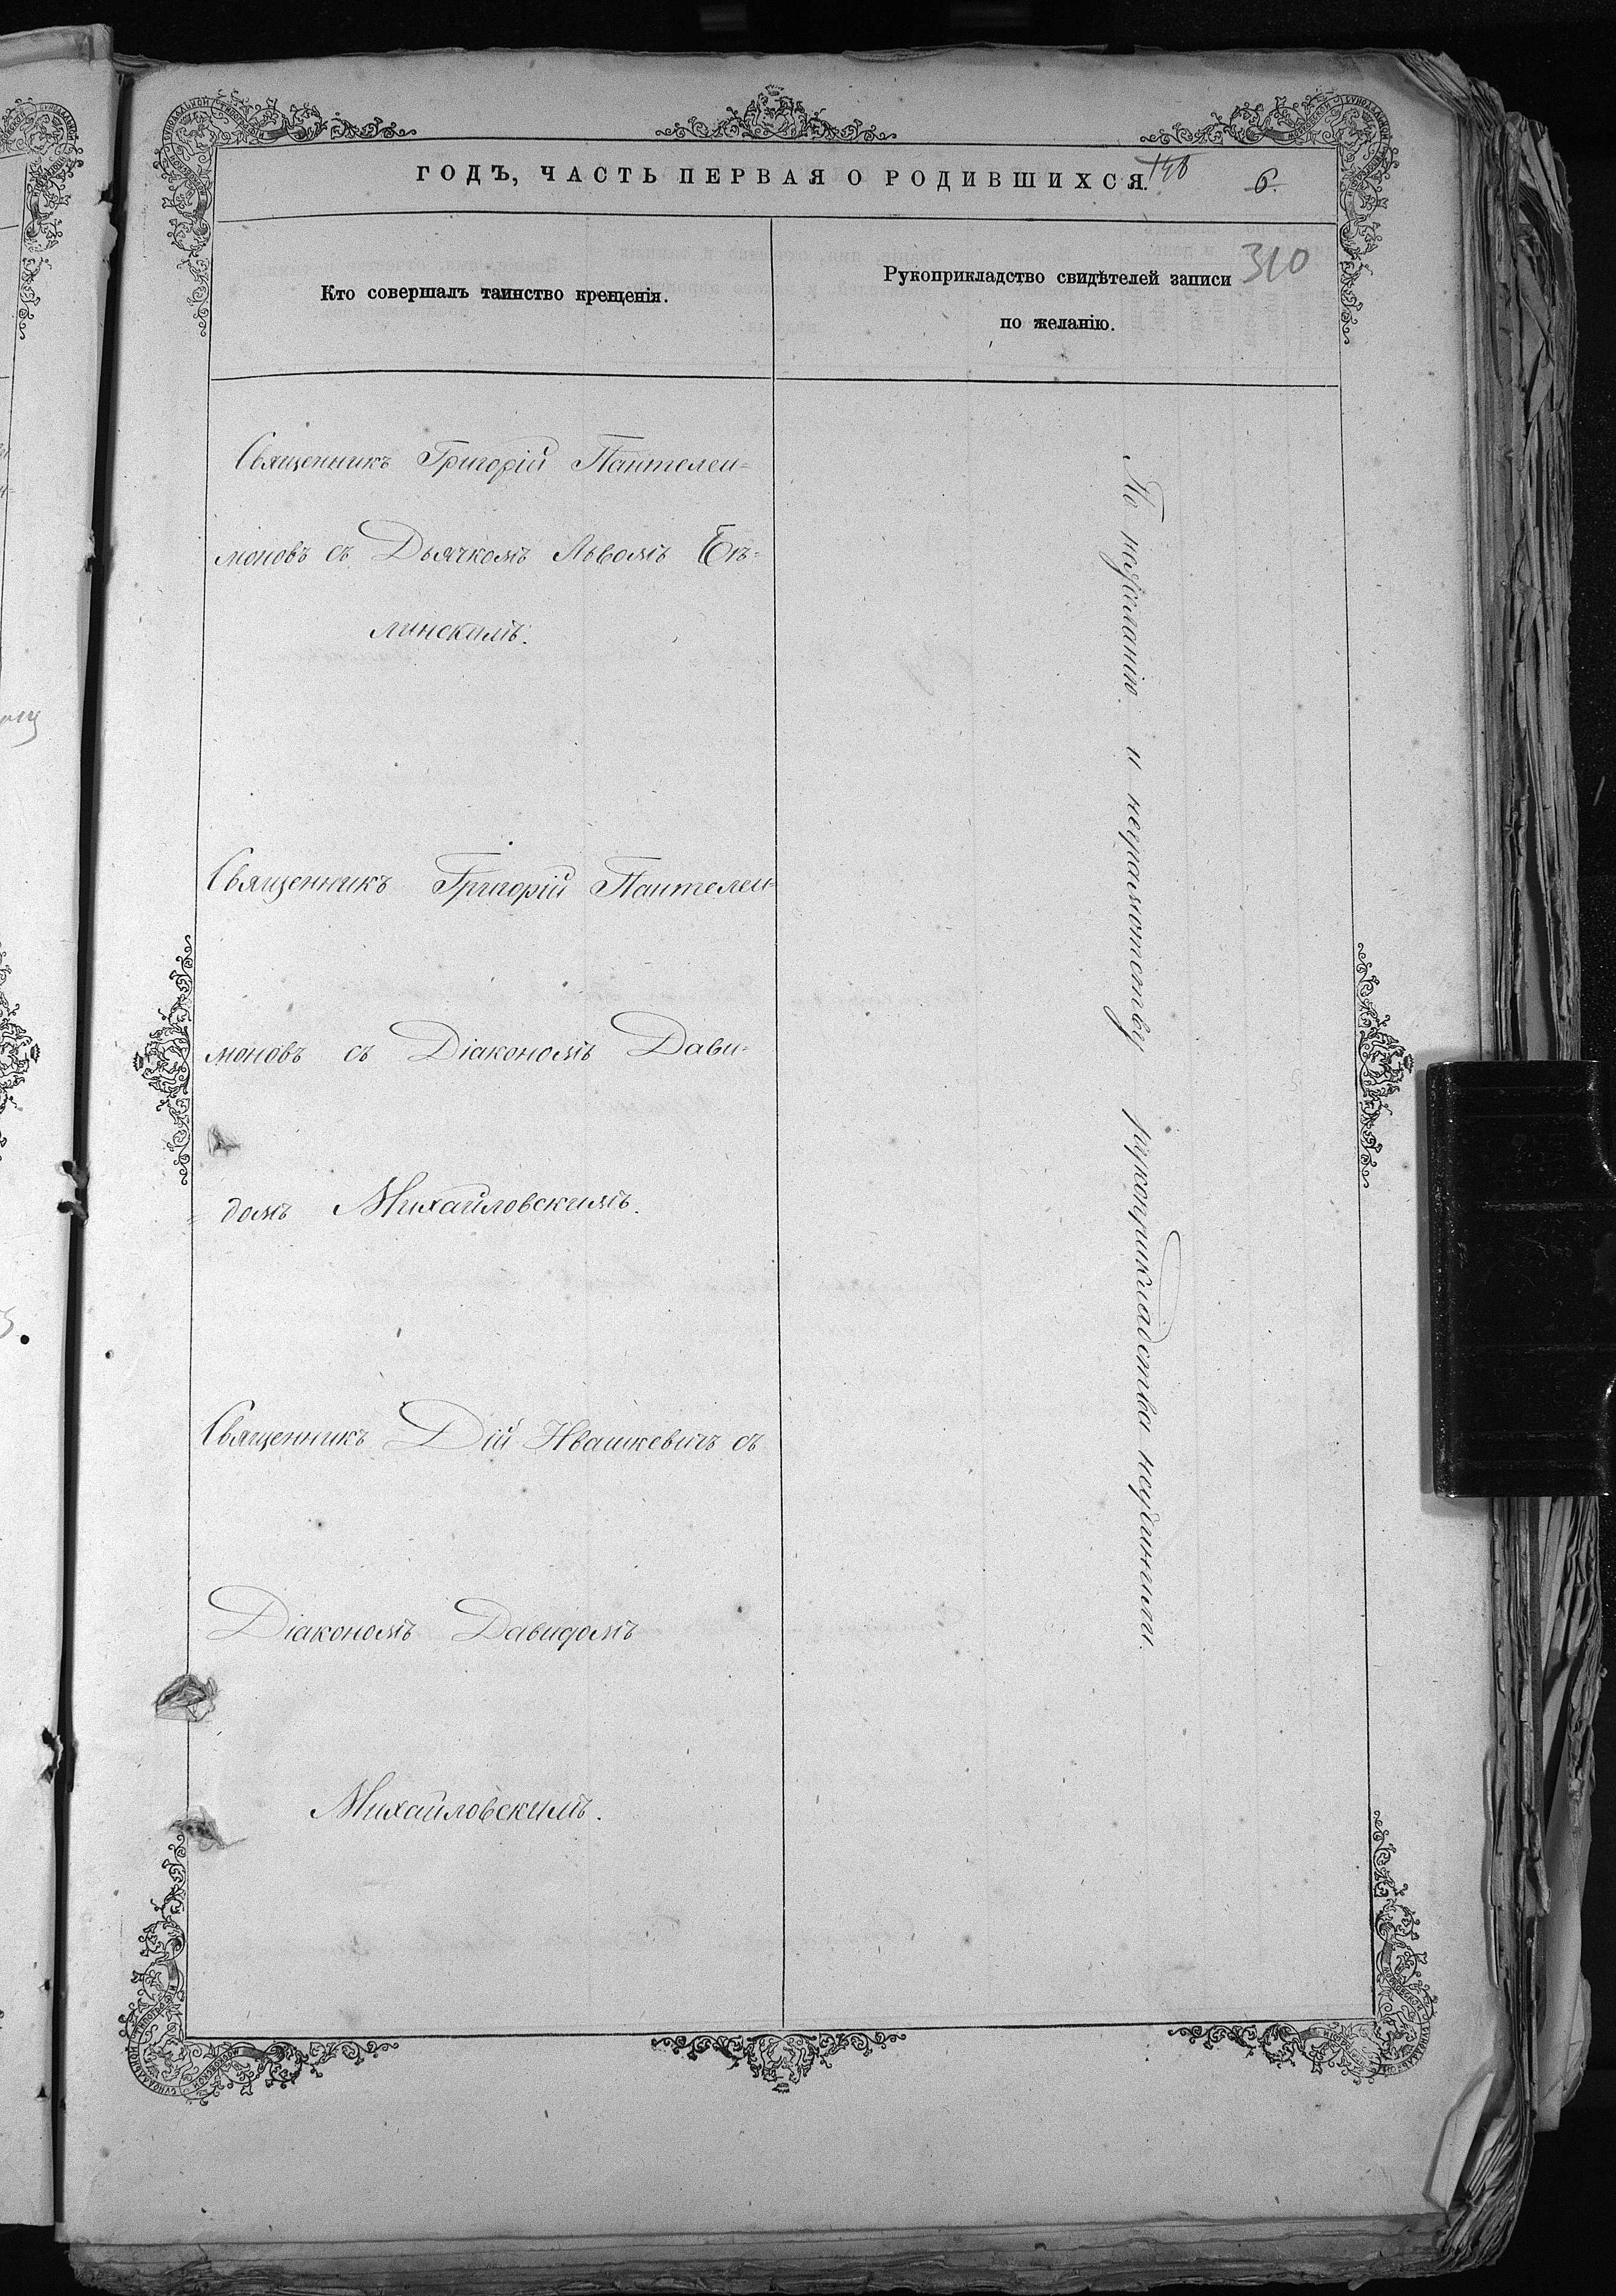 ГОДЪ, ЧАСТЬ ПЕРВАЯ О РОДИВШИХСЯ.
6.
310
Кто совершалъ таинство крещенія.
Рукоприкладство свидѣтелей записи
по желанію.
Священникъ Григорій Пантелеи=
моновъ съ Дьячкомъ Львомъ
линскимъ.
Священникъ Григорій Пантелеи=
моновъ съ Діакономъ Дави=
=домъ Михайловскимъ.
Священникъ Дій Ивашкевичъ съ
Діакономъ Давидомъ
Михайловскимъ.
По нежеланію и неграмотству рукоприкладства неучинили.